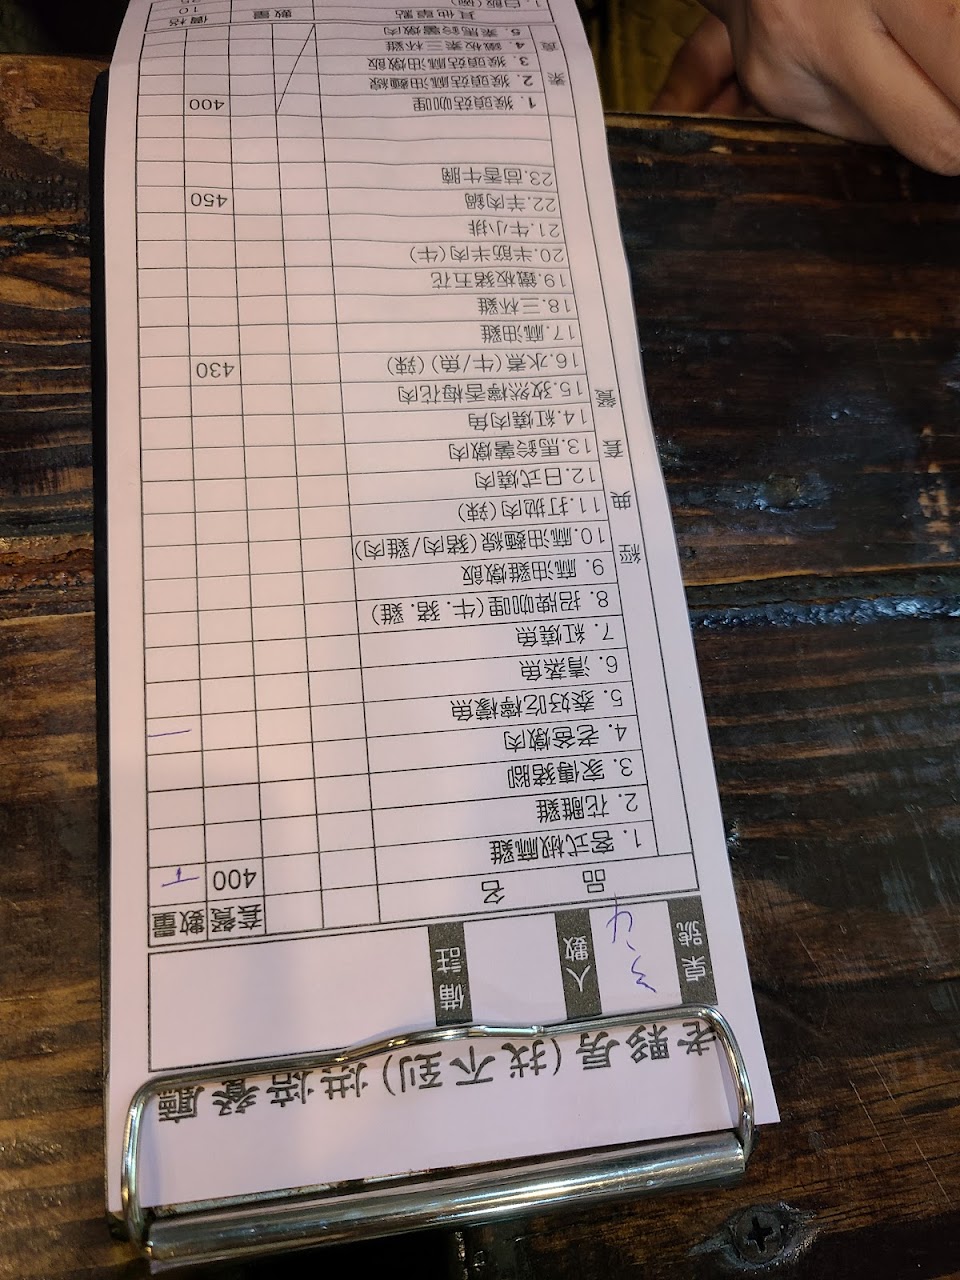 老夥房(找不到)烘焙餐廳
桌號 人數 備註
品名 套餐 數量
經典套餐
1. 客式椒麻雞 400
2. 花雕雞
3. 家傳豬腳
4. 老爸燉肉
5. 泰好吃檸檬魚
6. 清蒸魚
7. 紅燒魚
8. 招牌咖哩(牛. 豬. 雞)
9. 麻油雞燉飯
10.麻油麵線(豬肉/雞肉)
11.打拋肉(辣)
12.日式燒肉
13.馬鈴薯燉肉
14.紅燒肉角
15.孜然檸香梅花肉
16.水煮(牛/魚)(辣) 430
17.麻油雞
18.三杯雞
19.鐵板豬五花
20.半筋半肉(牛)
21.牛小排
22.羊肉鍋 450
23.茴香牛腩
素食
1. 猴頭菇咖哩 400
2. 猴頭菇麻油麵線
3. 猴頭菇麻油燉飯
4. 鐵板素三杯雞
5. 素馬鈴薯燉肉
其他單點 數量 價格
1. 白飯(碗) 10